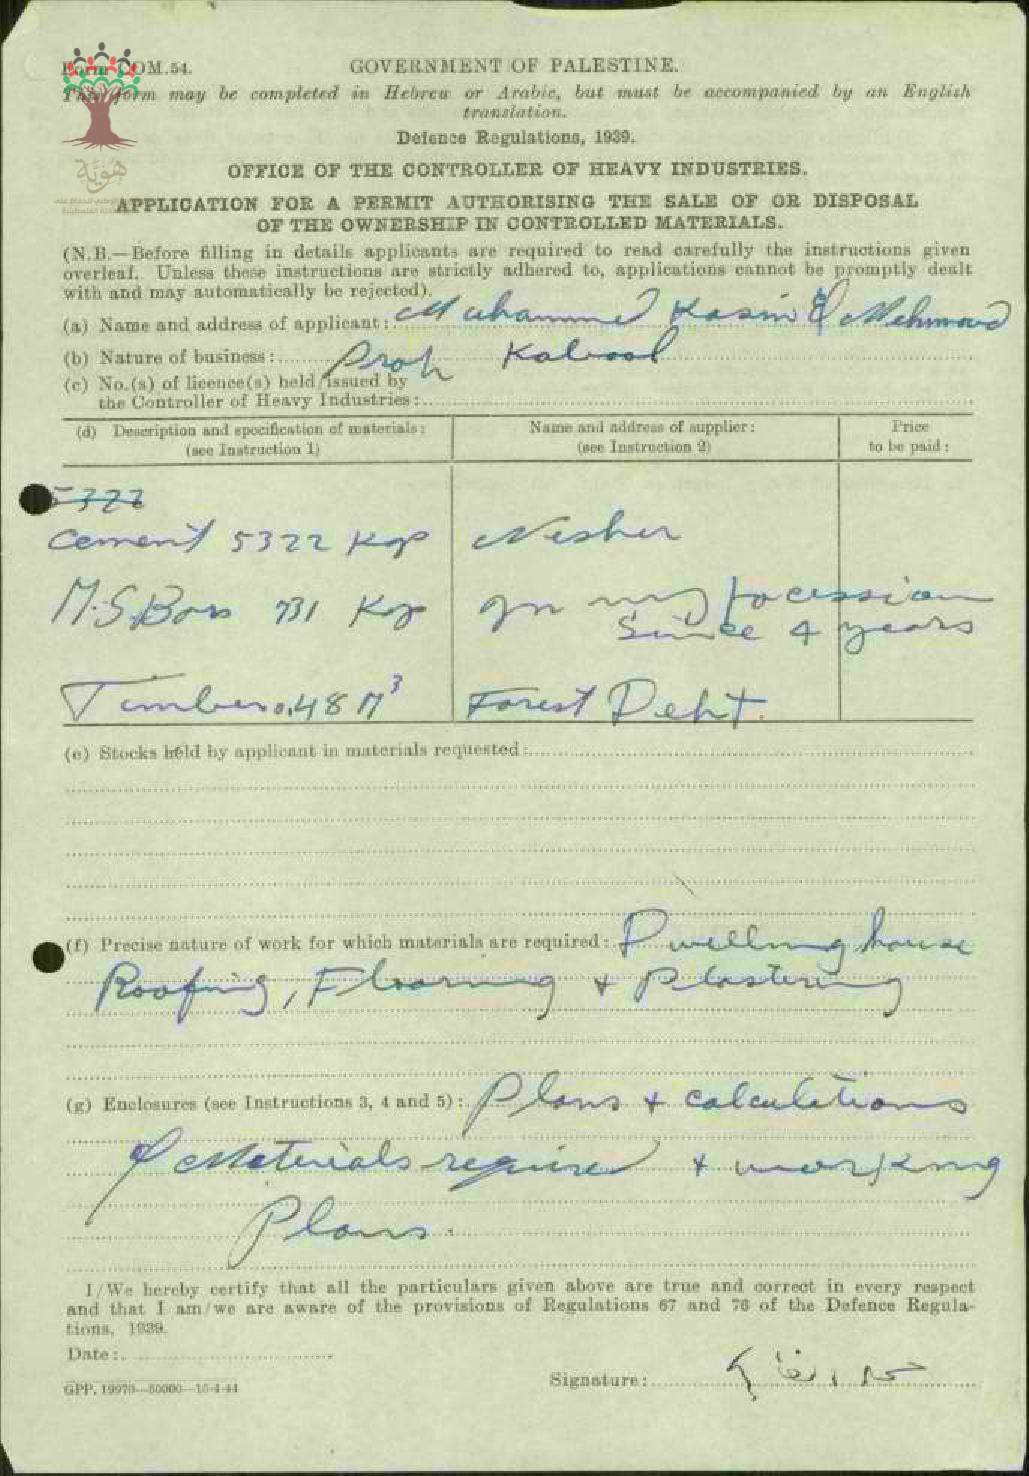 Form COM.54.
GOVERNMENT OF PALESTINE.
This form may be completed in Hebrew or Arabic, but must be accompanied by an English
translation.
Defence Regulations, 1939.
هوية
OFFICE OF THE CONTROLLER OF HEAVY INDUSTRIES.
APPLICATION FOR A PERMIT AUTHORISING THE SALE OF OR DISPOSAL
OF THE OWNERSHIP IN CONTROLLED MATERIALS.
(N.B.—Before filling in details applicants are required to read carefully the instructions given
overleaf. Unless these instructions are strictly adhered to, applications cannot be promptly dealt
with and may automatically be rejected).
(a) Name and address of applicant: Muhammed Kasim & Mehmoud
(b) Nature of business:
(c) No.(s) of licence(s) held/issued by
the Controller of Heavy Industries:
(d) Description and specification of materials: Name and address of supplier: Price
(see Instruction 1) (see Instruction 2) to be paid:
5322
Cement 5322 Kgs Nesher
M.S. Bars 731 Kgs In my pocession
Since 4 years
Timber 0.48 M³ Forest Deht.
(e) Stocks held by applicant in materials requested:
(f) Precise nature of work for which materials are required: Dwelling house
Roofing, Flooring + Plastering
(g) Enclosures (see Instructions 3, 4 and 5): Plans + calculations
of Materials require + working
Plans.
I/We hereby certify that all the particulars given above are true and correct in every respect
and that I am/we are aware of the provisions of Regulations 67 and 76 of the Defence Regula-
tions, 1939.
Date:
GPP. 19970—50000—15-4-44
Signature: